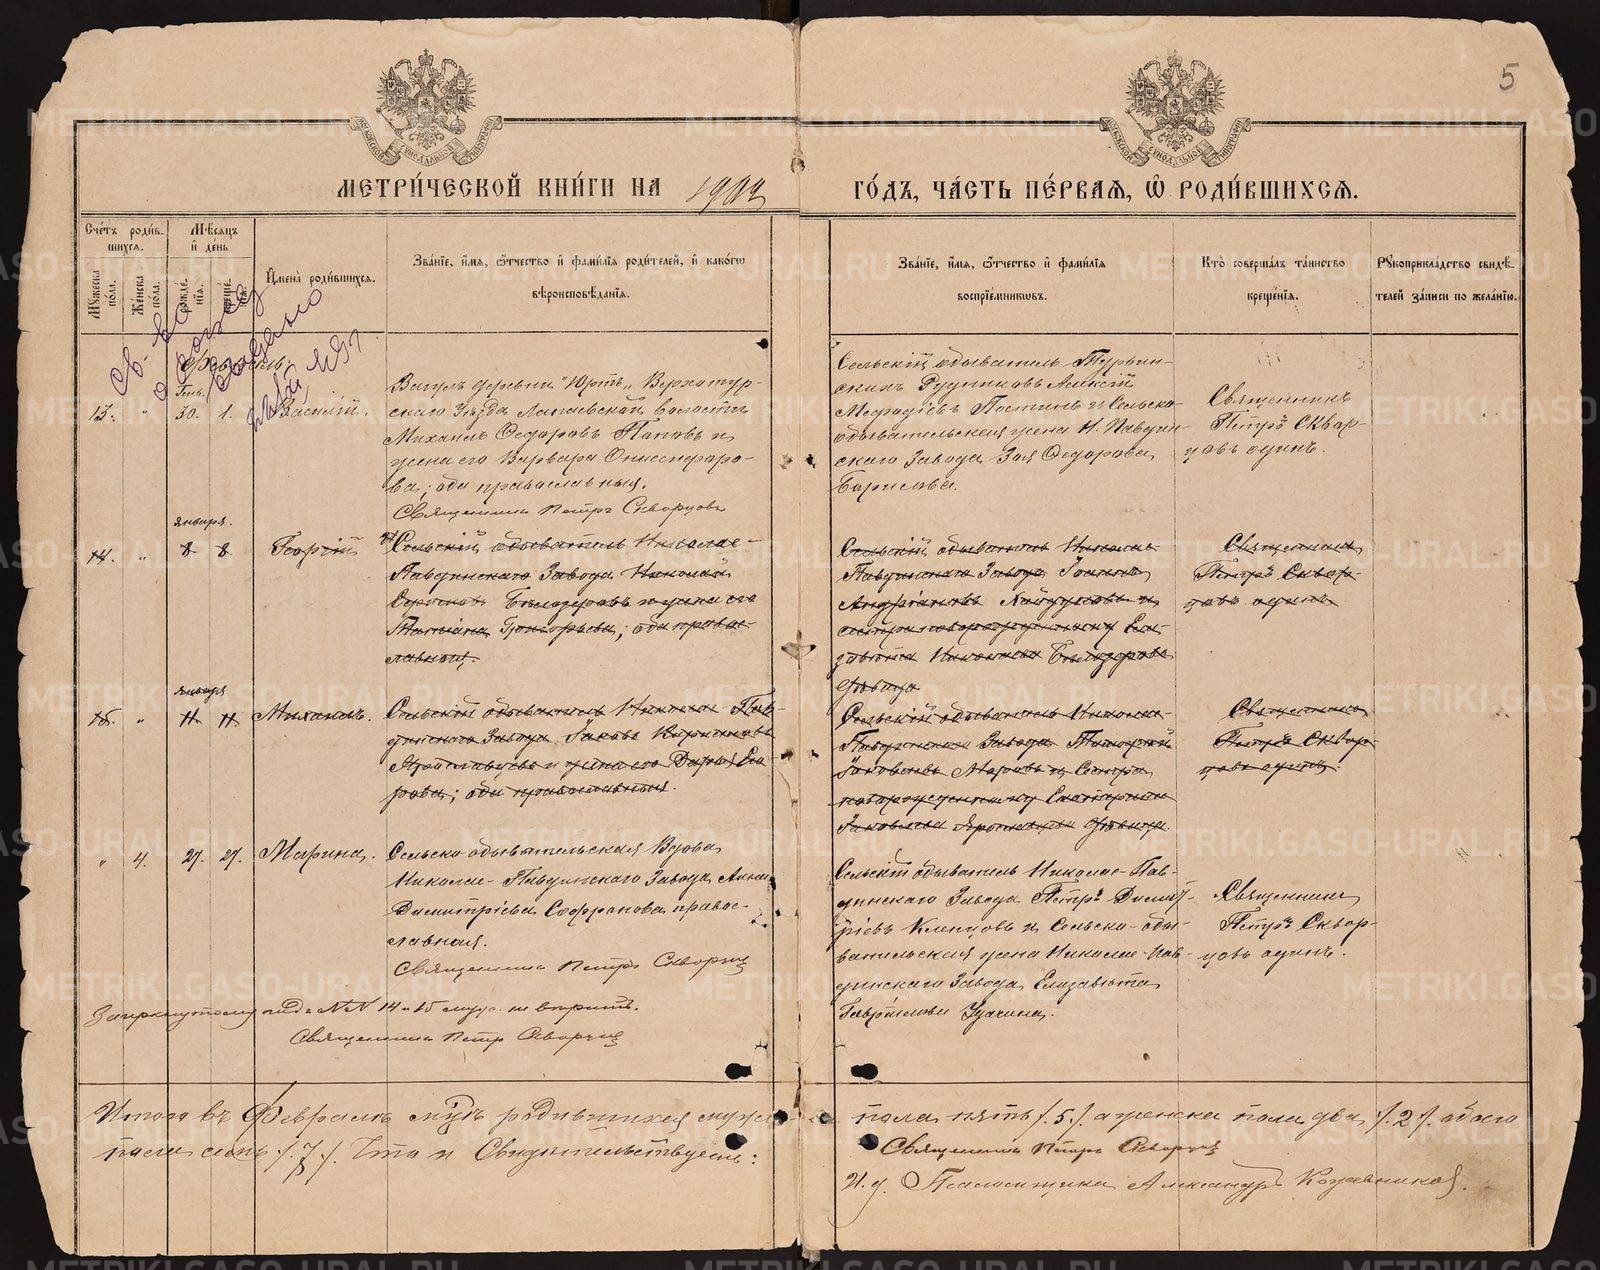 5
МЕТРИ́ЧЕСКОЙ КНИ́ГИ НА
ГО́ДЪ, ЧА́СТЬ ПЕ́РВАЯ, Ѡ҆ РОДИ́ВШИХСЯ.
Сче́тъ роди́в-
шихся.
Мѣ́сяцъ
и҆ де́нь
Му́жеска
по́ла.
Же́нска
по́ла.
рожде́-
нїя.
И҆мена̀ роди́вшихся.
Зва́нїе, и҆́мя, ѻ҆́тчество и҆ фами́лїя роди́телей, и҆ како́гѡ
вѣроисповѣ́данїя.
Зва́нїе, и҆́мя, ѻ҆́тчество и҆ фами́лїя
воспрїе́мникѡвъ.
Кто̀ соверша́лъ та́инство
креще́нїя.
Рꙋкоприкла́дство свидѣ́-
телей за́писи по жела́нїю.
Февраль.
Ген.
13. " 30. 1. Василій.
Вагулъ деревни "Юртъ" Верхотур-
скаго Уѣзда Лапаевской волости
Михаилъ Федоровъ Паповъ и
жена его Варвара Онисифоро-
ва; оба православныя.
Священникъ Петръ Скворцовъ
Сельскій обыватель Турьин-
скихъ Рудниковъ Алексій
Мефодіевъ Постинъ и Сельско-
обывательская жена Н. Павдин-
скаго Завода Зоя Федорова
Борисова.
Священникъ
Петръ Сквор-
цовъ одинъ.
января.
14. " 8 8 Георгій
Сельскій обыватель Николае-
Павдинскаго Завода Николай
Бѣлозеровъ и жена его
Татіана Григорьева; оба право-
славныя.
Сельскій обыватель Николае-
Павдинскаго Завода Іоаннъ
Андріановъ и
сестра новорожденному Ели-
завета Николаева Бѣлозерова
дѣвица
Священникъ
Петръ Сквор-
цовъ одинъ
января
15. " 11 11 Михаилъ.
Сельскій обыватель Николае-Пав-
динскаго Завода Іаковъ
и жена его Дарья Его-
рова; оба православныя.
Сельскій обыватель Николае-
Павдинскаго Завода
Іаковлевъ и Сестра
новорожденному Екатерина
Іаковлева дѣвица.
Священникъ
Петръ Сквор-
цовъ одинъ.
" 4. 27. 27. Марина.
Сельско-обывательская Вдова
Николае-Павдинскаго Завода Анна
Димитріева Софронова право-
славная.
Священникъ Петръ Скворцовъ
Сельскій обыватель Николае-Пав-
динскаго Завода Петръ Димит-
ріевъ Клепцовъ и Сельско-обы-
вательская жена Николае-Пав-
динскаго Завода Елизавета
Гавріилова Удачина.
Священникъ
Петръ Сквор-
цовъ одинъ.
Зачеркнутому подъ №№ 14 и 15 муж. не вѣрить.
Священникъ Петръ Скворцовъ
Итого въ Февралѣ мцѣ родившихся муж.
пола пять /.5./ а женска пола два /.2./ обоего
пола семь /.7./. Что и Свидѣтельствуемъ:
Священникъ Петръ Скворцовъ
И. д. Псаломщика Александръ Кожевниковъ.
METRIKI.GASO-URAL.RU